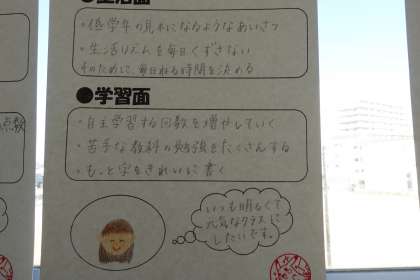 ●生活面
・低学年の見本になるようなあいさつ
・生活リズムを毎日くずさない
そのために、毎日ねる時間を決める
●学習面
・自主学習する回数を増やしていく
・苦手な教科の勉強をたくさんする
・もっと字をきれいに書く
点数
いつも明るくて、
元気なクラスに
したいです。